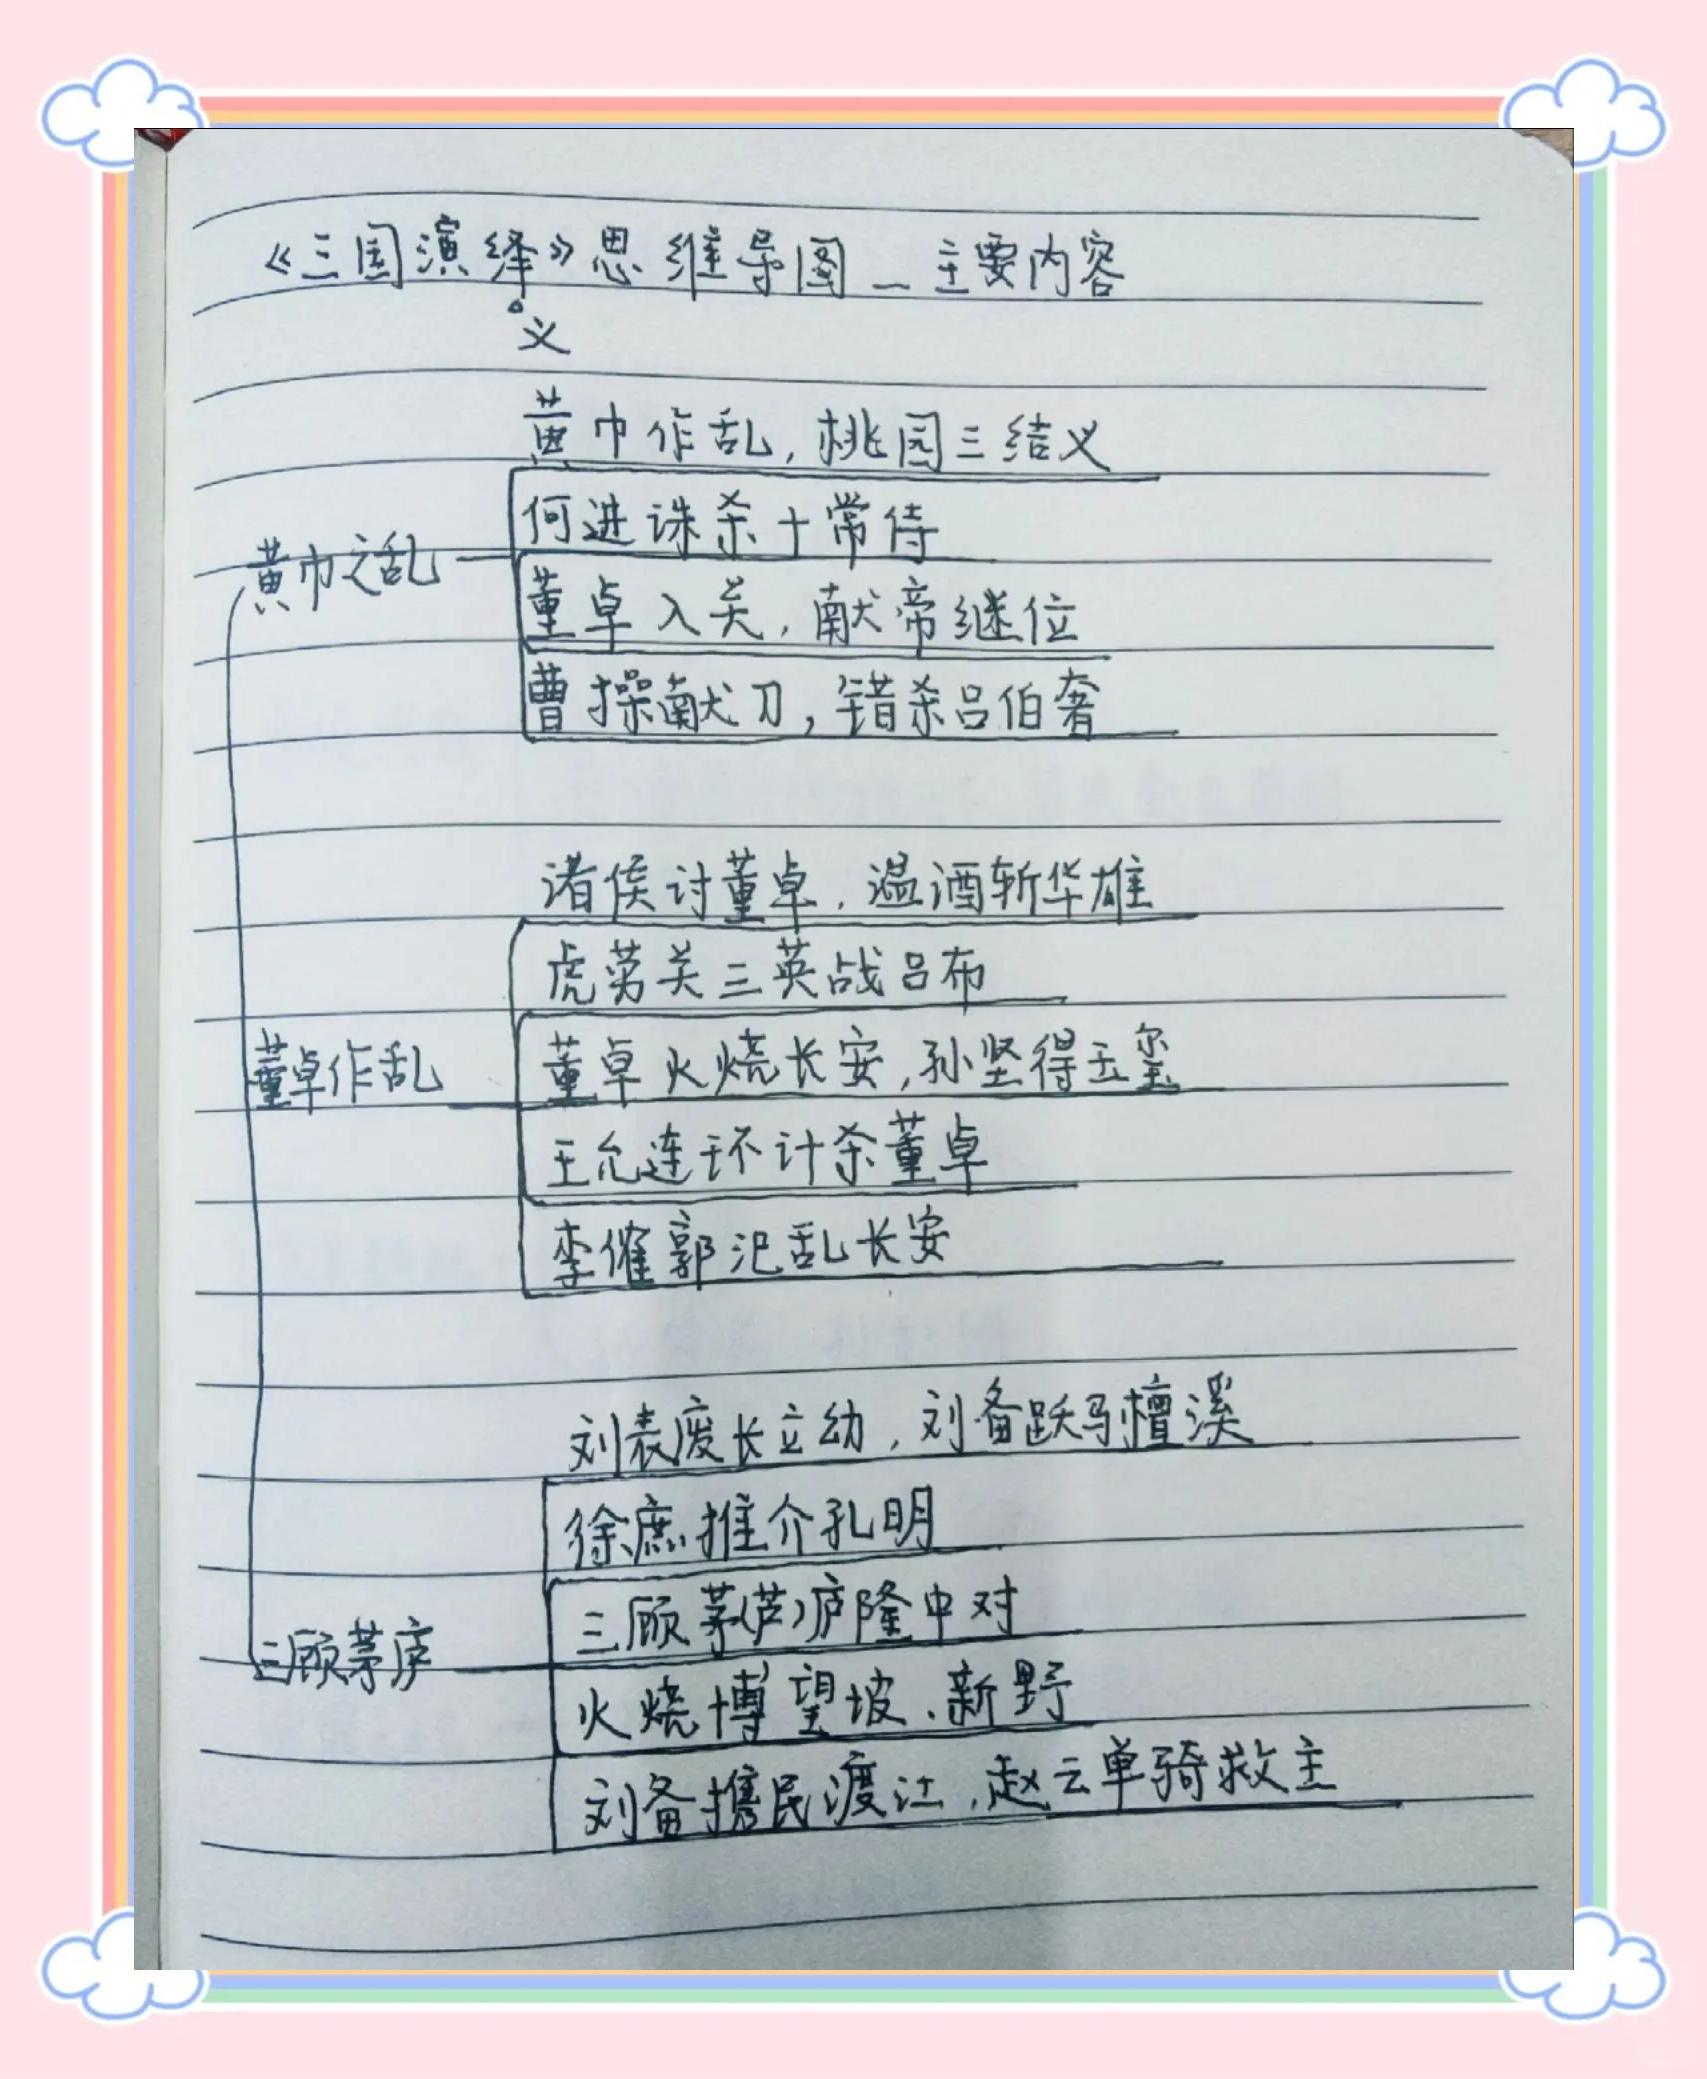 《三国演绎》思维导图_主要内容
义
黄巾作乱,桃园三结义
何进诛杀十常侍
黄巾之乱
董卓入关,献帝继位
曹操献刀,错杀吕伯奢
诸侯讨董卓,温酒斩华雄
虎劳关三英战吕布
董卓作乱
董卓火烧长安,孙坚得玉玺
王允连环计杀董卓
李傕郭汜乱长安
刘表废长立幼,刘备跃马檀溪
徐庶推介孔明
三顾茅(芦)庐隆中对
三顾茅庐
火烧博望坡、新野
刘备携民渡江,赵云单骑救主